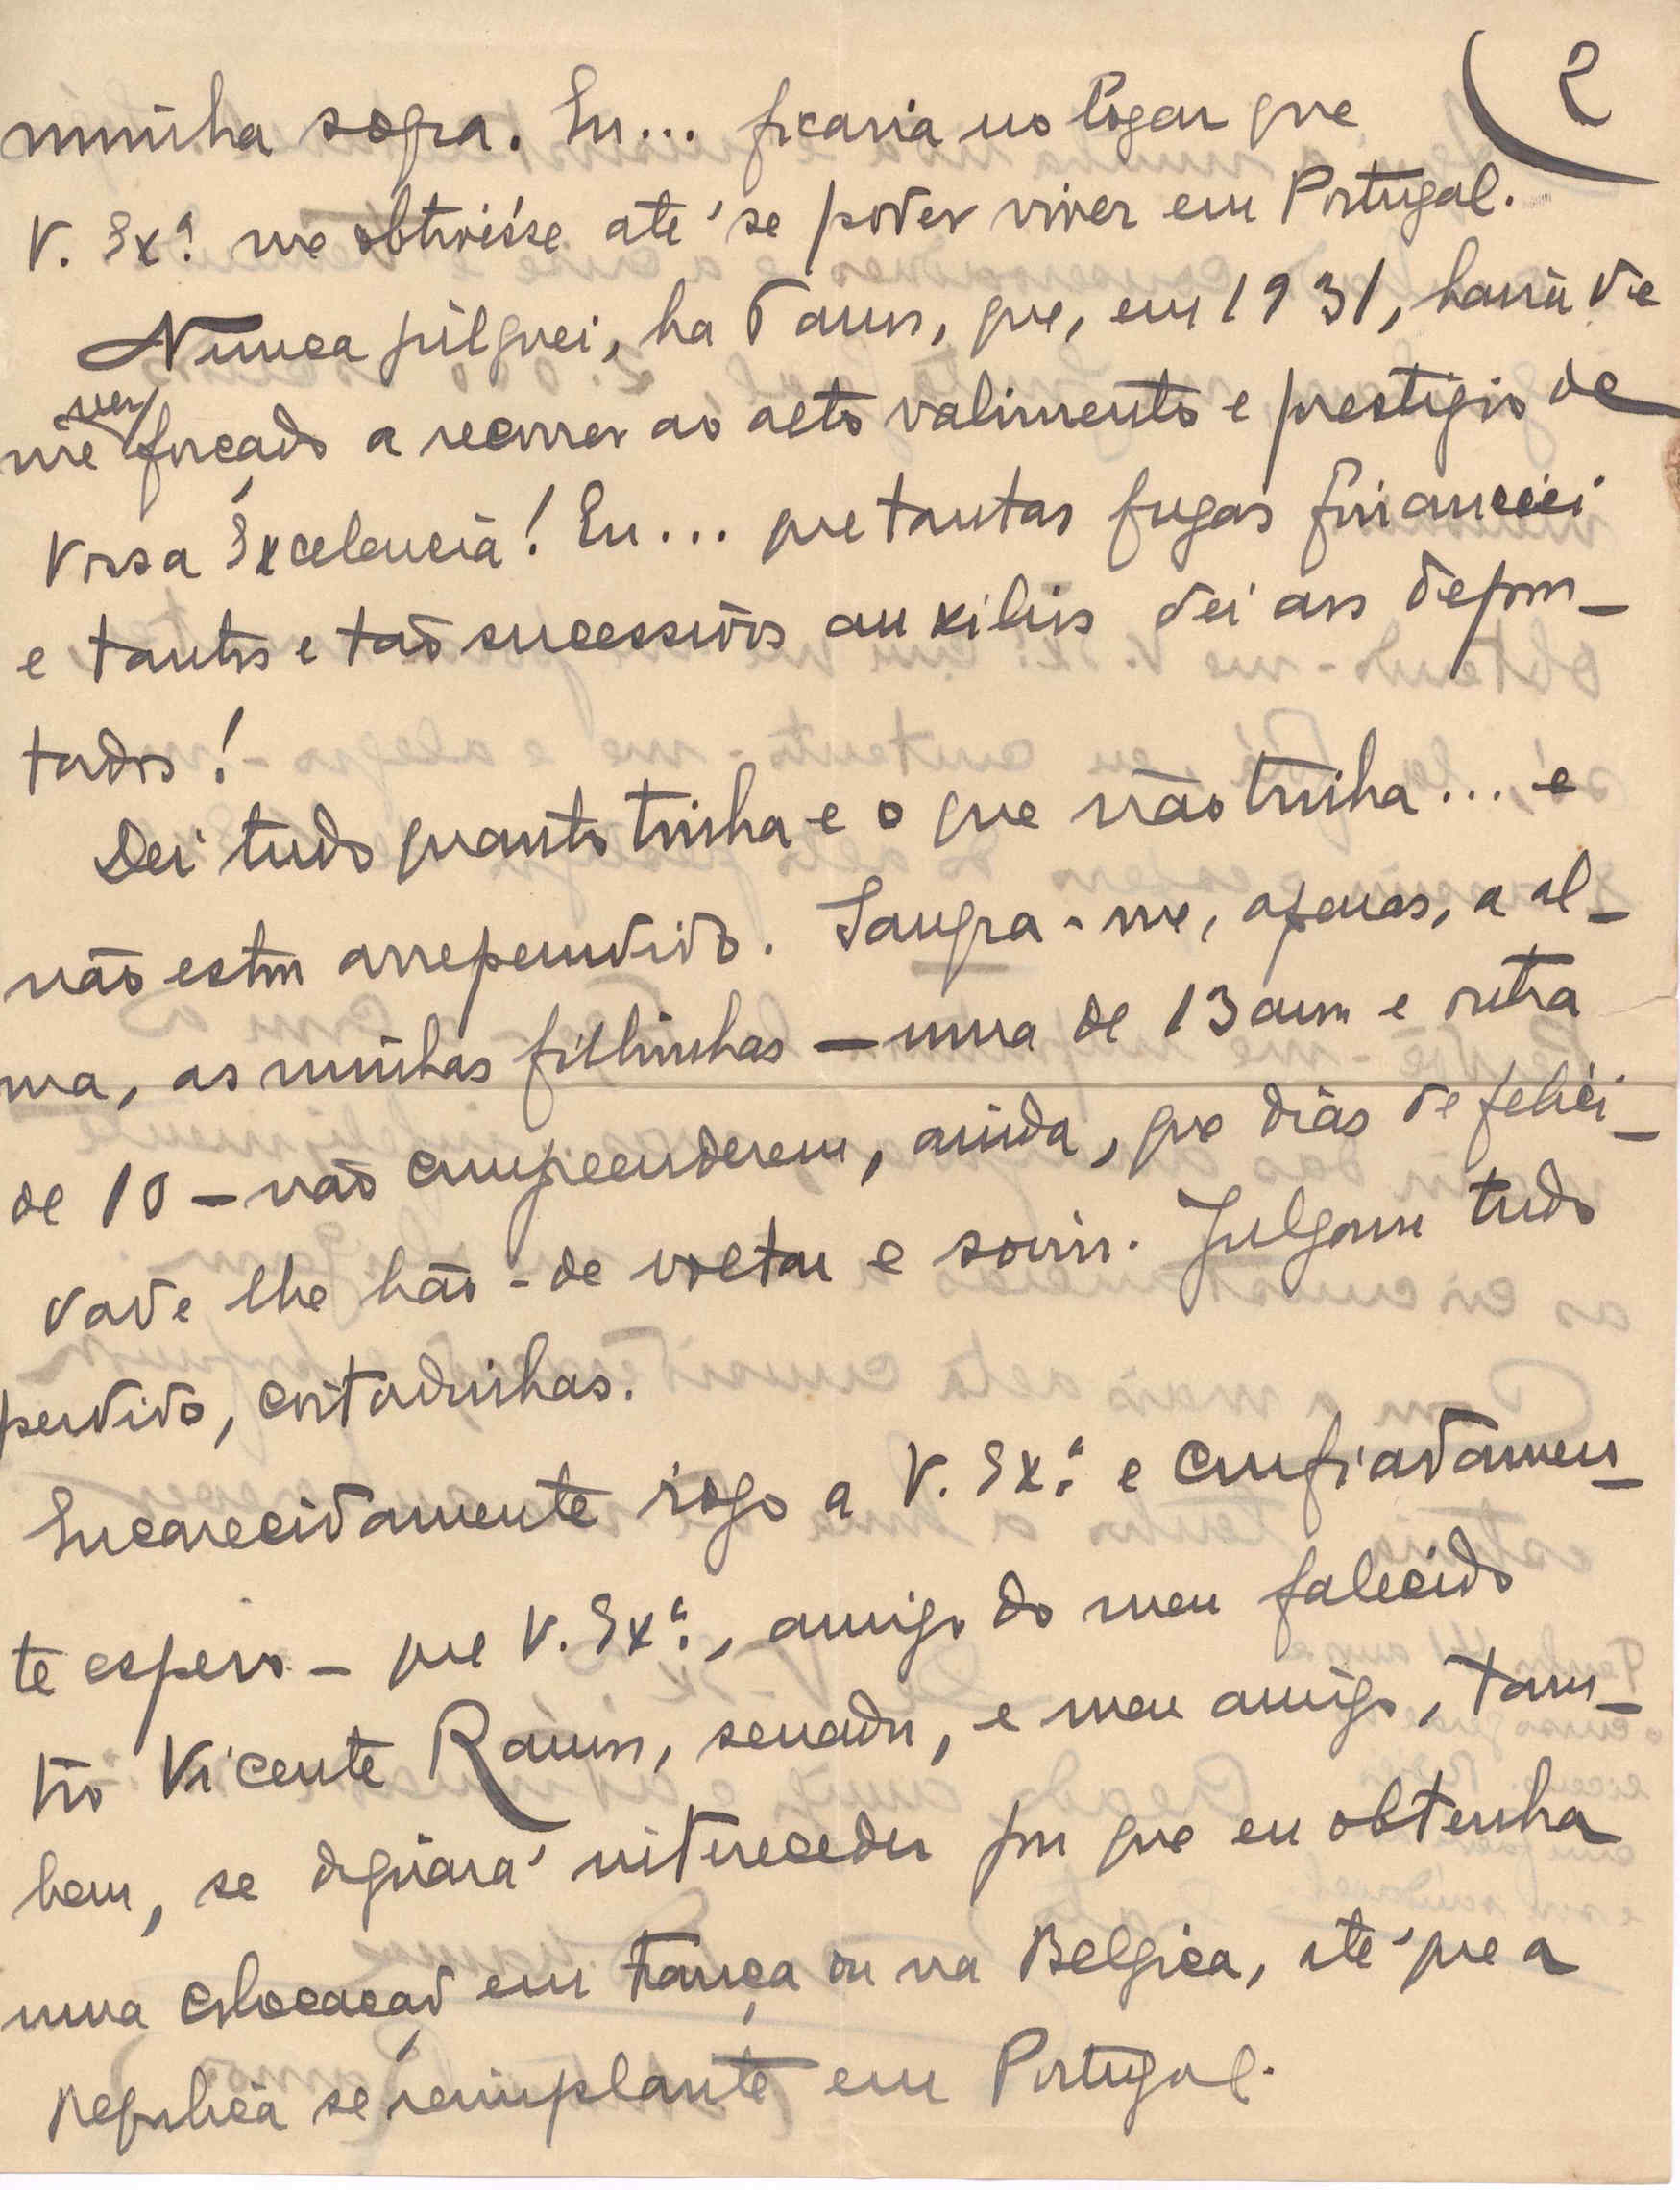 2
minha sogra. Eu... ficaria no logar que
V. Exª me obtivésse até se poder viver em Portugal.
Nunca julguei, ha anos, que, em 1931, havia de
me ver forçado a recorrer ao alto valimento e prestigio de
Vossa Excelencia! Eu... que tantas fugas financiei
e tantos e tão sucessivos auxilios dei aos depor-
tados!
Dei tudo quanto tinha e o que não tinha... e
não estou arrependido. Sangra-me, apenas, a al-
ma, as minhas filhinhas — uma de 13 anos e outra
de 10 — não compreenderem, ainda, que dias de felici-
dade lhe hão-de voltar e sorrir. Julgam tudo
perdido, coitadinhas.
Encarecidamente rogo a V. Exª e confiadamen-
te espero — que V. Exª, amigo do meu falecido
tio Vicente Ramos, senador, e meu amigo, tam-
bem, se dignará interceder por que eu obtenha
uma colocação em França ou na Belgica, até que a
Republica se reimplante em Portugal.